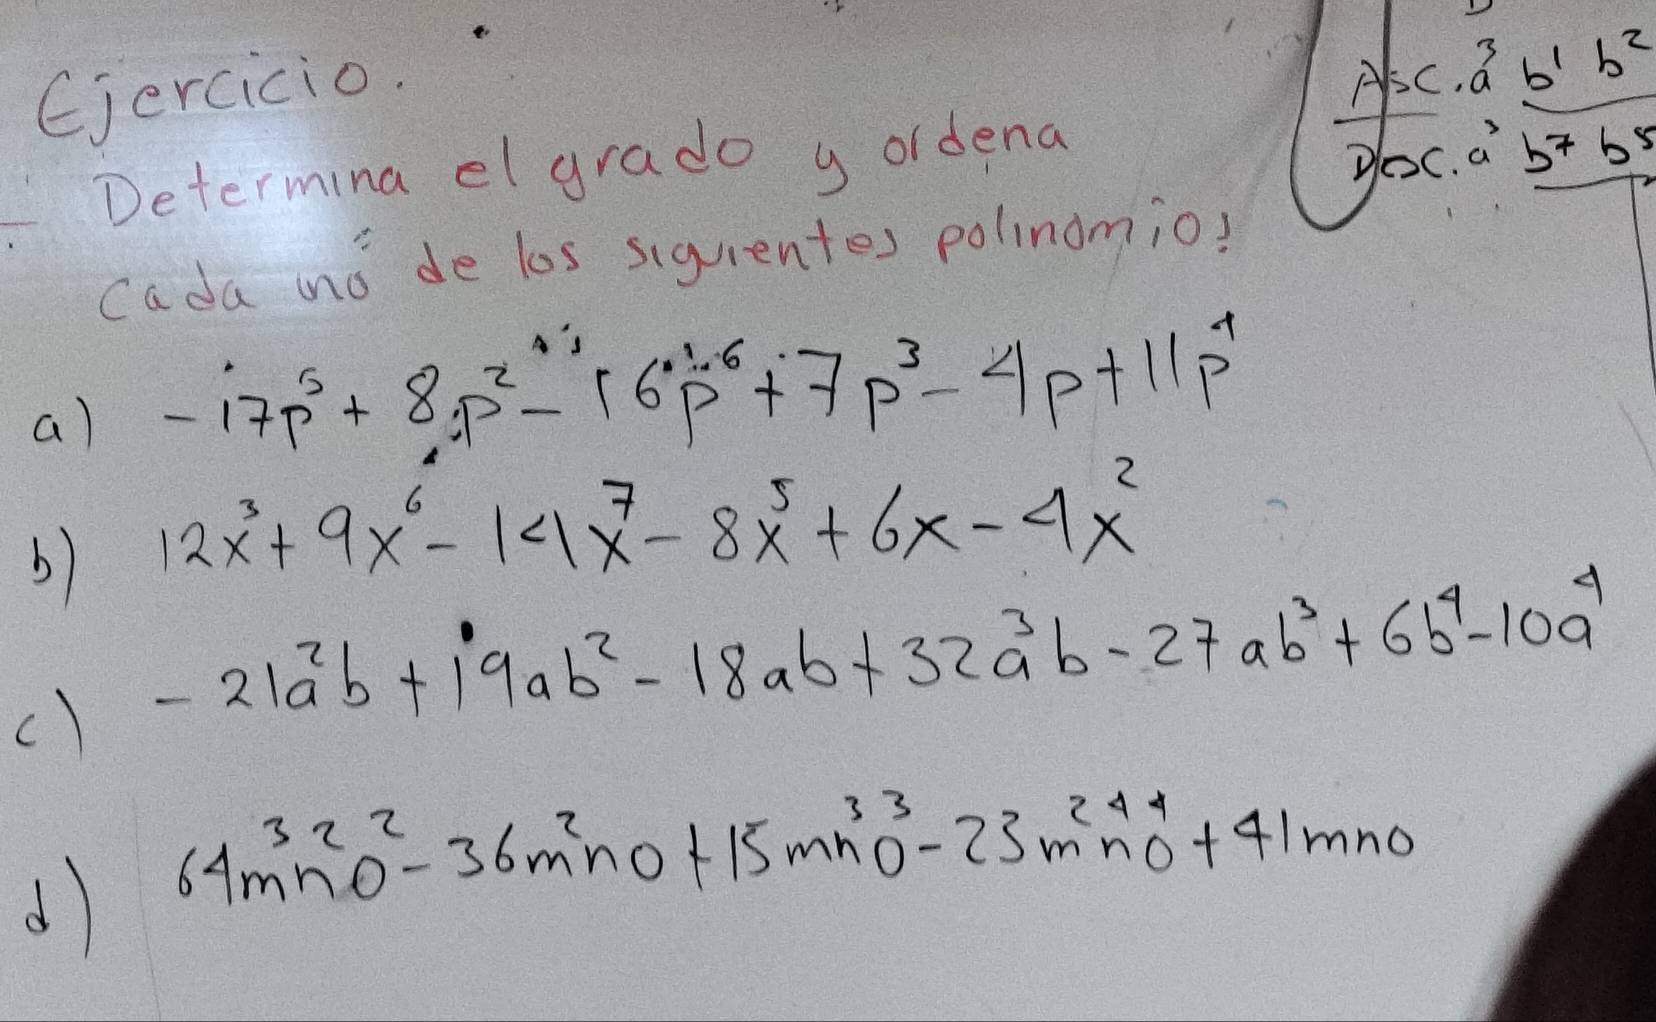 Ejercicio.
Determina el grado y ordena
cada uno de los siguientes polinomios
a) -17p⁵ + 8p² - 16p⁶ + 7p³ - 4p + 11p⁴
b) 12x³ + 9x⁶ - 14x⁷ - 8x⁵ + 6x - 4x²
c) -21a²b + 19ab² - 18ab + 32a³b - 27ab³ + 6b⁴ - 10a⁴
d) 64m³n²o² - 36m²no + 15mn³o³ - 23m²n⁴o⁴ + 41mno
Asc. a³ b¹ b²
Desc. a³ b⁷ b⁵